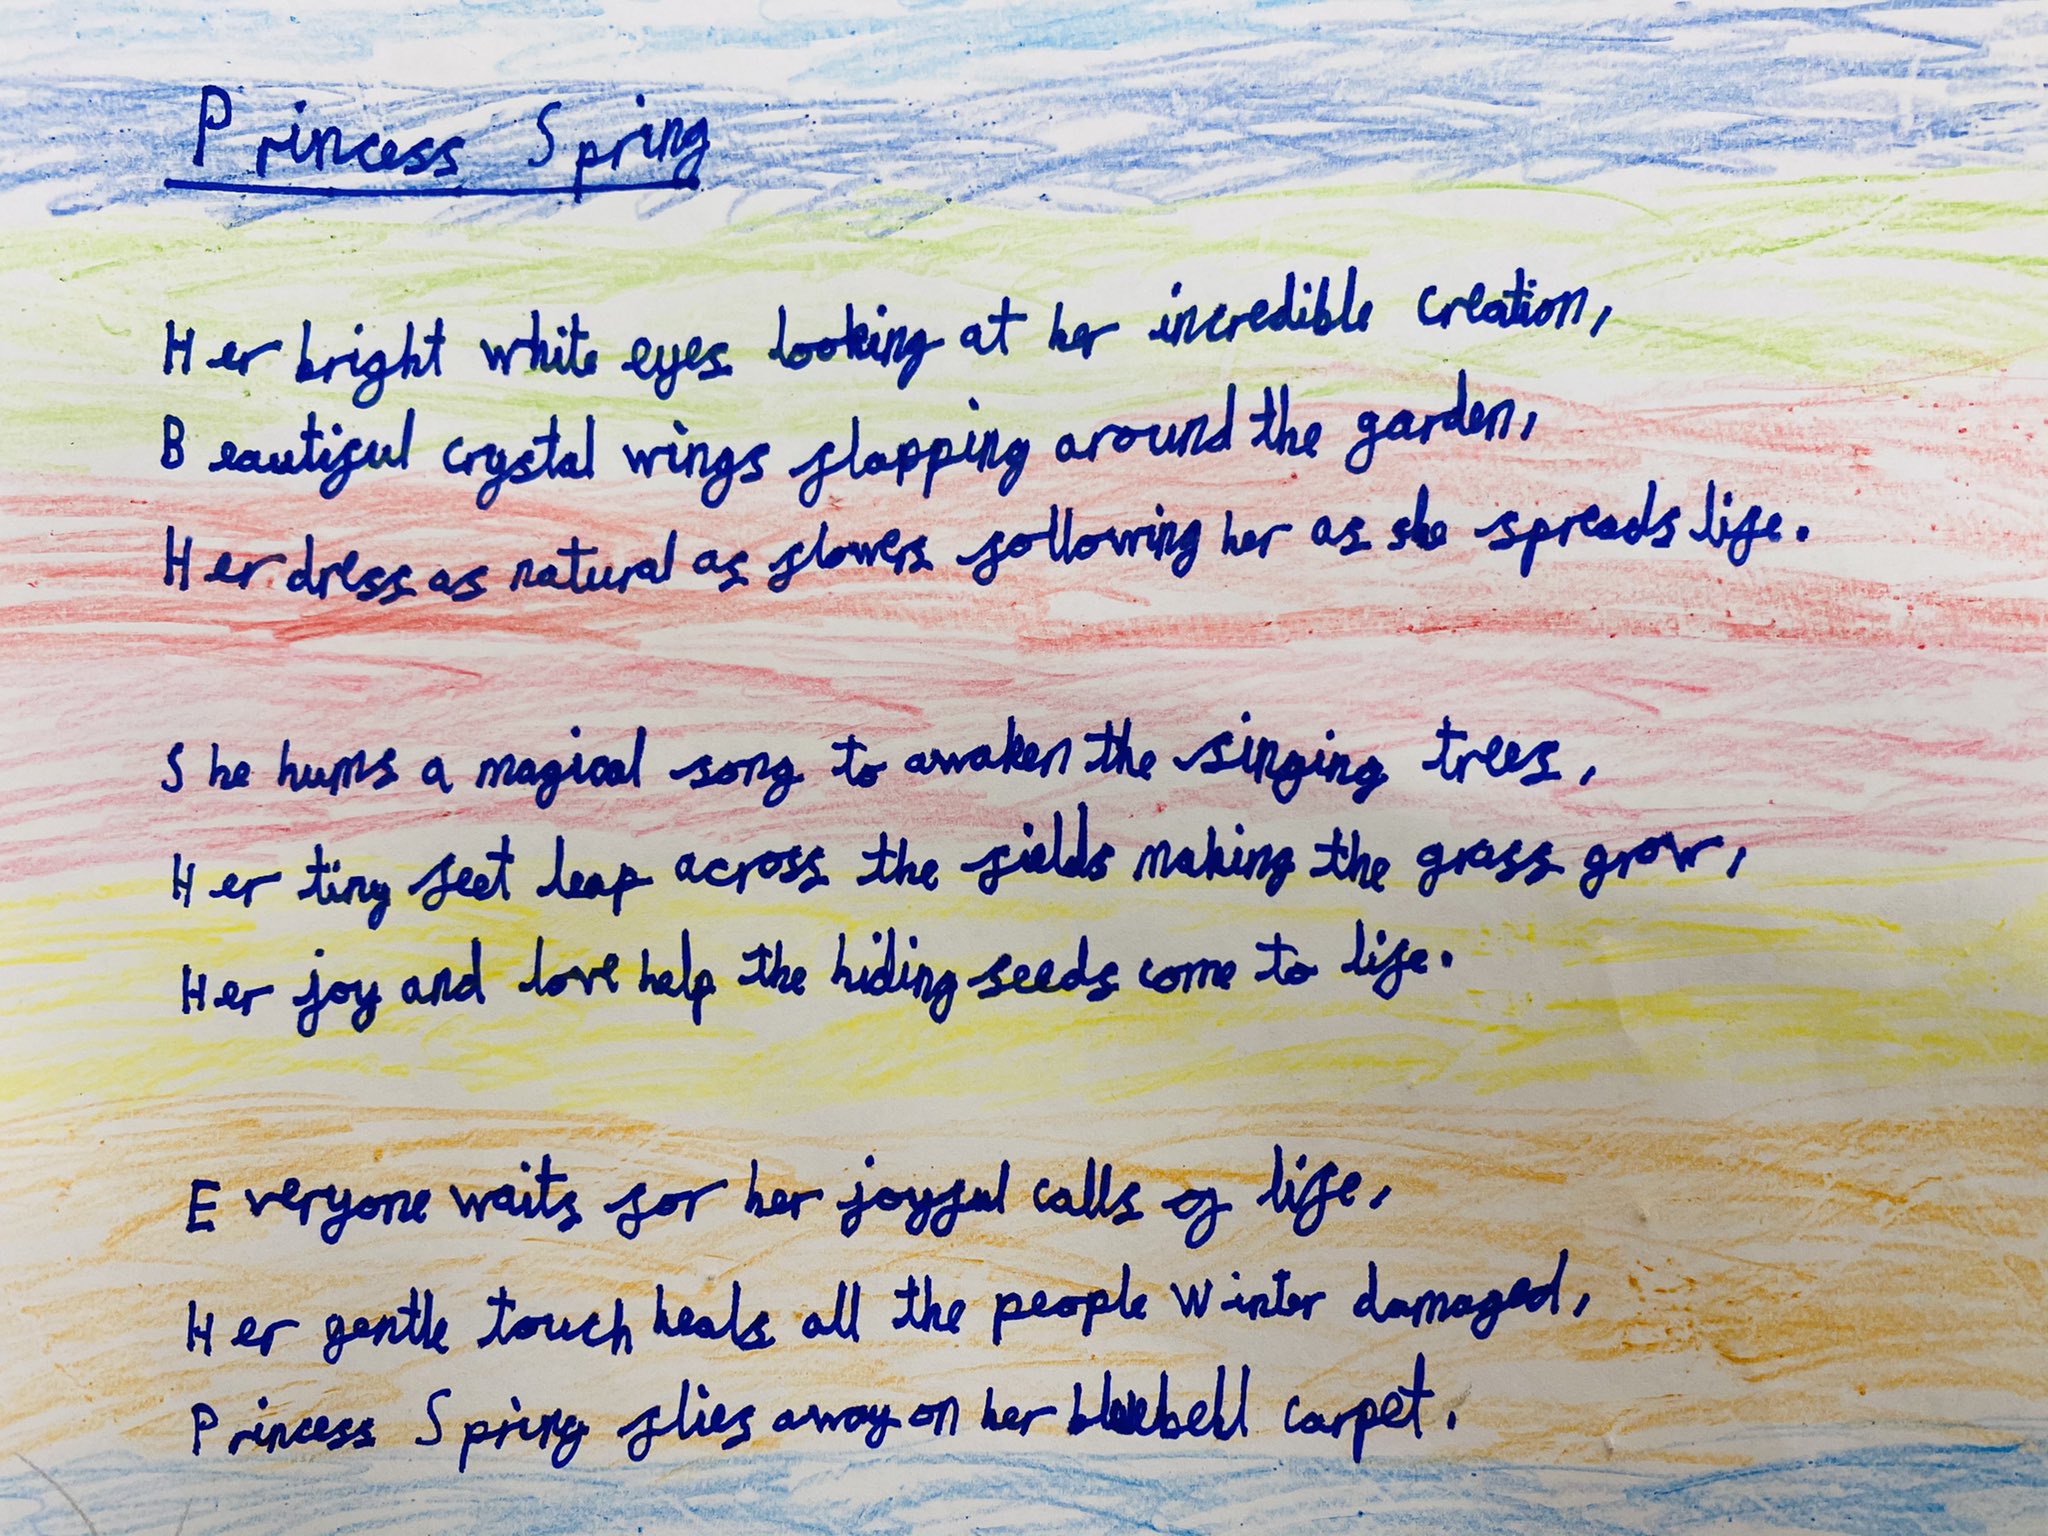 Princess Spring
Her bright white eyes looking at her incredible creation,
Beautiful crystal wings flapping around the garden,
Her dress as natural as flowers following her as she spreads life.
She hums a magical song to awaken the singing trees,
Her tiny feet leap across the fields making the grass grow,
Her joy and love help the hiding seeds come to life.
Everyone waits for her joyful calls of life,
Her gentle touch heals all the people Winter damaged,
Princess Spring flies away on her bluebell carpet.